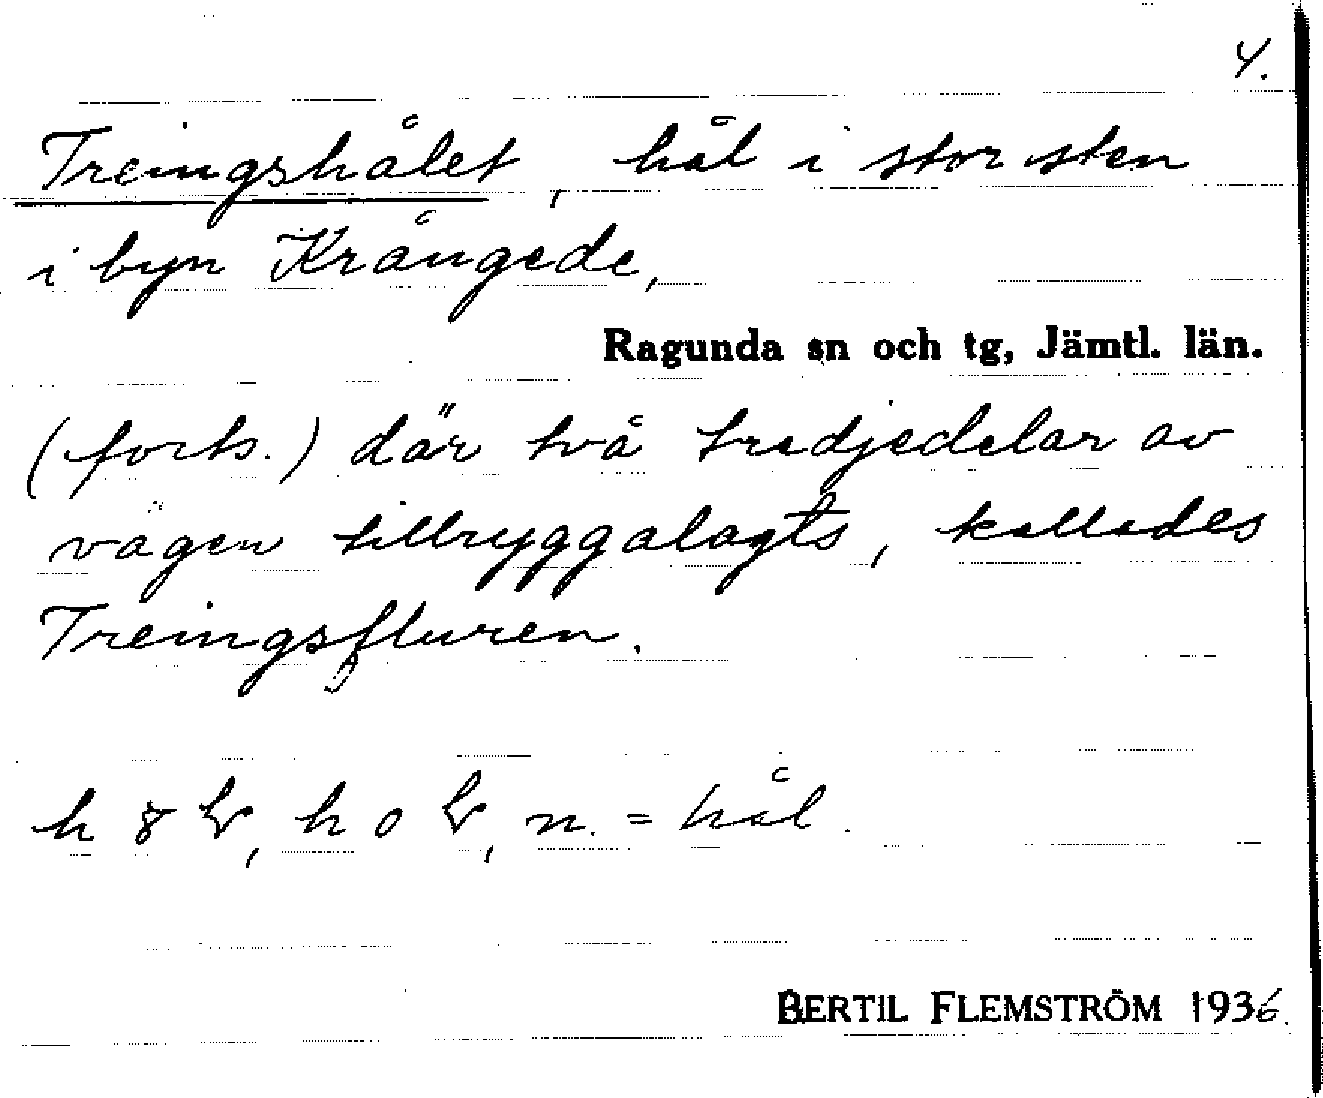 4.
Treingshålet, hål i stor sten
i byn Krångede,
Ragunda sn och tg, Jämtl. län.
(forts.) där två tredjedelar av
vägen tillryggalagts, kallades
Treingsfluren.
n. = hål.
BERTIL FLEMSTRÖM 1936.